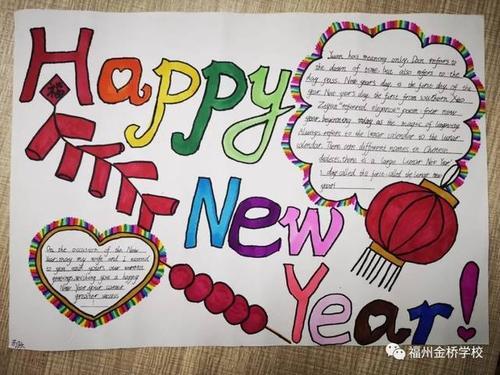 Happy
福
Yuan has meaning only, Dan refers to
the dawn of time but also refers to the
day pass. New year's day is the first day of the
year. New year's day the first from southern
"poem four many
the lunar calendar to the lunar
calendar. There are different names in Chinese
dialects, there is a large Lunar New Year
1 day called the first called the lunar new
year!
New
On the occasion of the New
Year, may my wife and I extend
to you and yours our warmest
greetings, wishing you a happy
New Year, your career
greater success
Year!
福州金桥学校